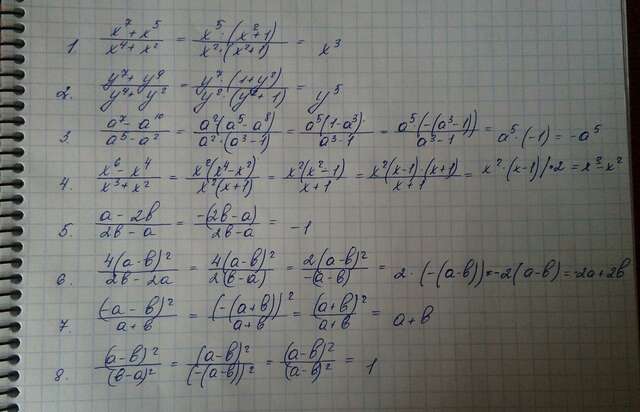 1. (x⁷ + x⁵)/(x⁴ + x²) = (x⁵ · (x² + 1))/(x² · (x² + 1)) = x³
2. (y⁷ + y⁹)/(y⁴ + y²) = (y⁷ · (1 + y²))/(y² (y² + 1)) = y⁵
3. (a⁷ - a¹⁰)/(a⁵ - a²) = (a²(a⁵ - a⁸))/(a² · (a³ - 1)) = (a⁵(1 - a³))/(a³ - 1) = (a⁵(-(a³ - 1)))/(a³ - 1) = a⁵ · (-1) = -a⁵
4. (x⁶ - x⁴)/(x³ + x²) = (x²(x⁴ - x²))/(x²(x + 1)) = (x²(x² - 1))/(x + 1) = (x²(x - 1)·(x + 1))/(x + 1) = x² · (x - 1) = x³ - x²
5. (a - 2b)/(2b - a) = (-(2b - a))/(2b - a) = -1
6. (4(a - b)²)/(2b - 2a) = (4(a - b)²)/(2(b - a)) = (2(a - b)²)/(-(a - b)) = 2 · (-(a - b)) = -2(a - b) = -2a + 2b
7. ((-a - b)²)/(a + b) = ((-(a + b))²)/(a + b) = ((a + b)²)/(a + b) = a + b
8. ((a - b)²)/((b - a)²) = ((a - b)²)/((-(a - b))²) = ((a - b)²)/((a - b)²) = 1